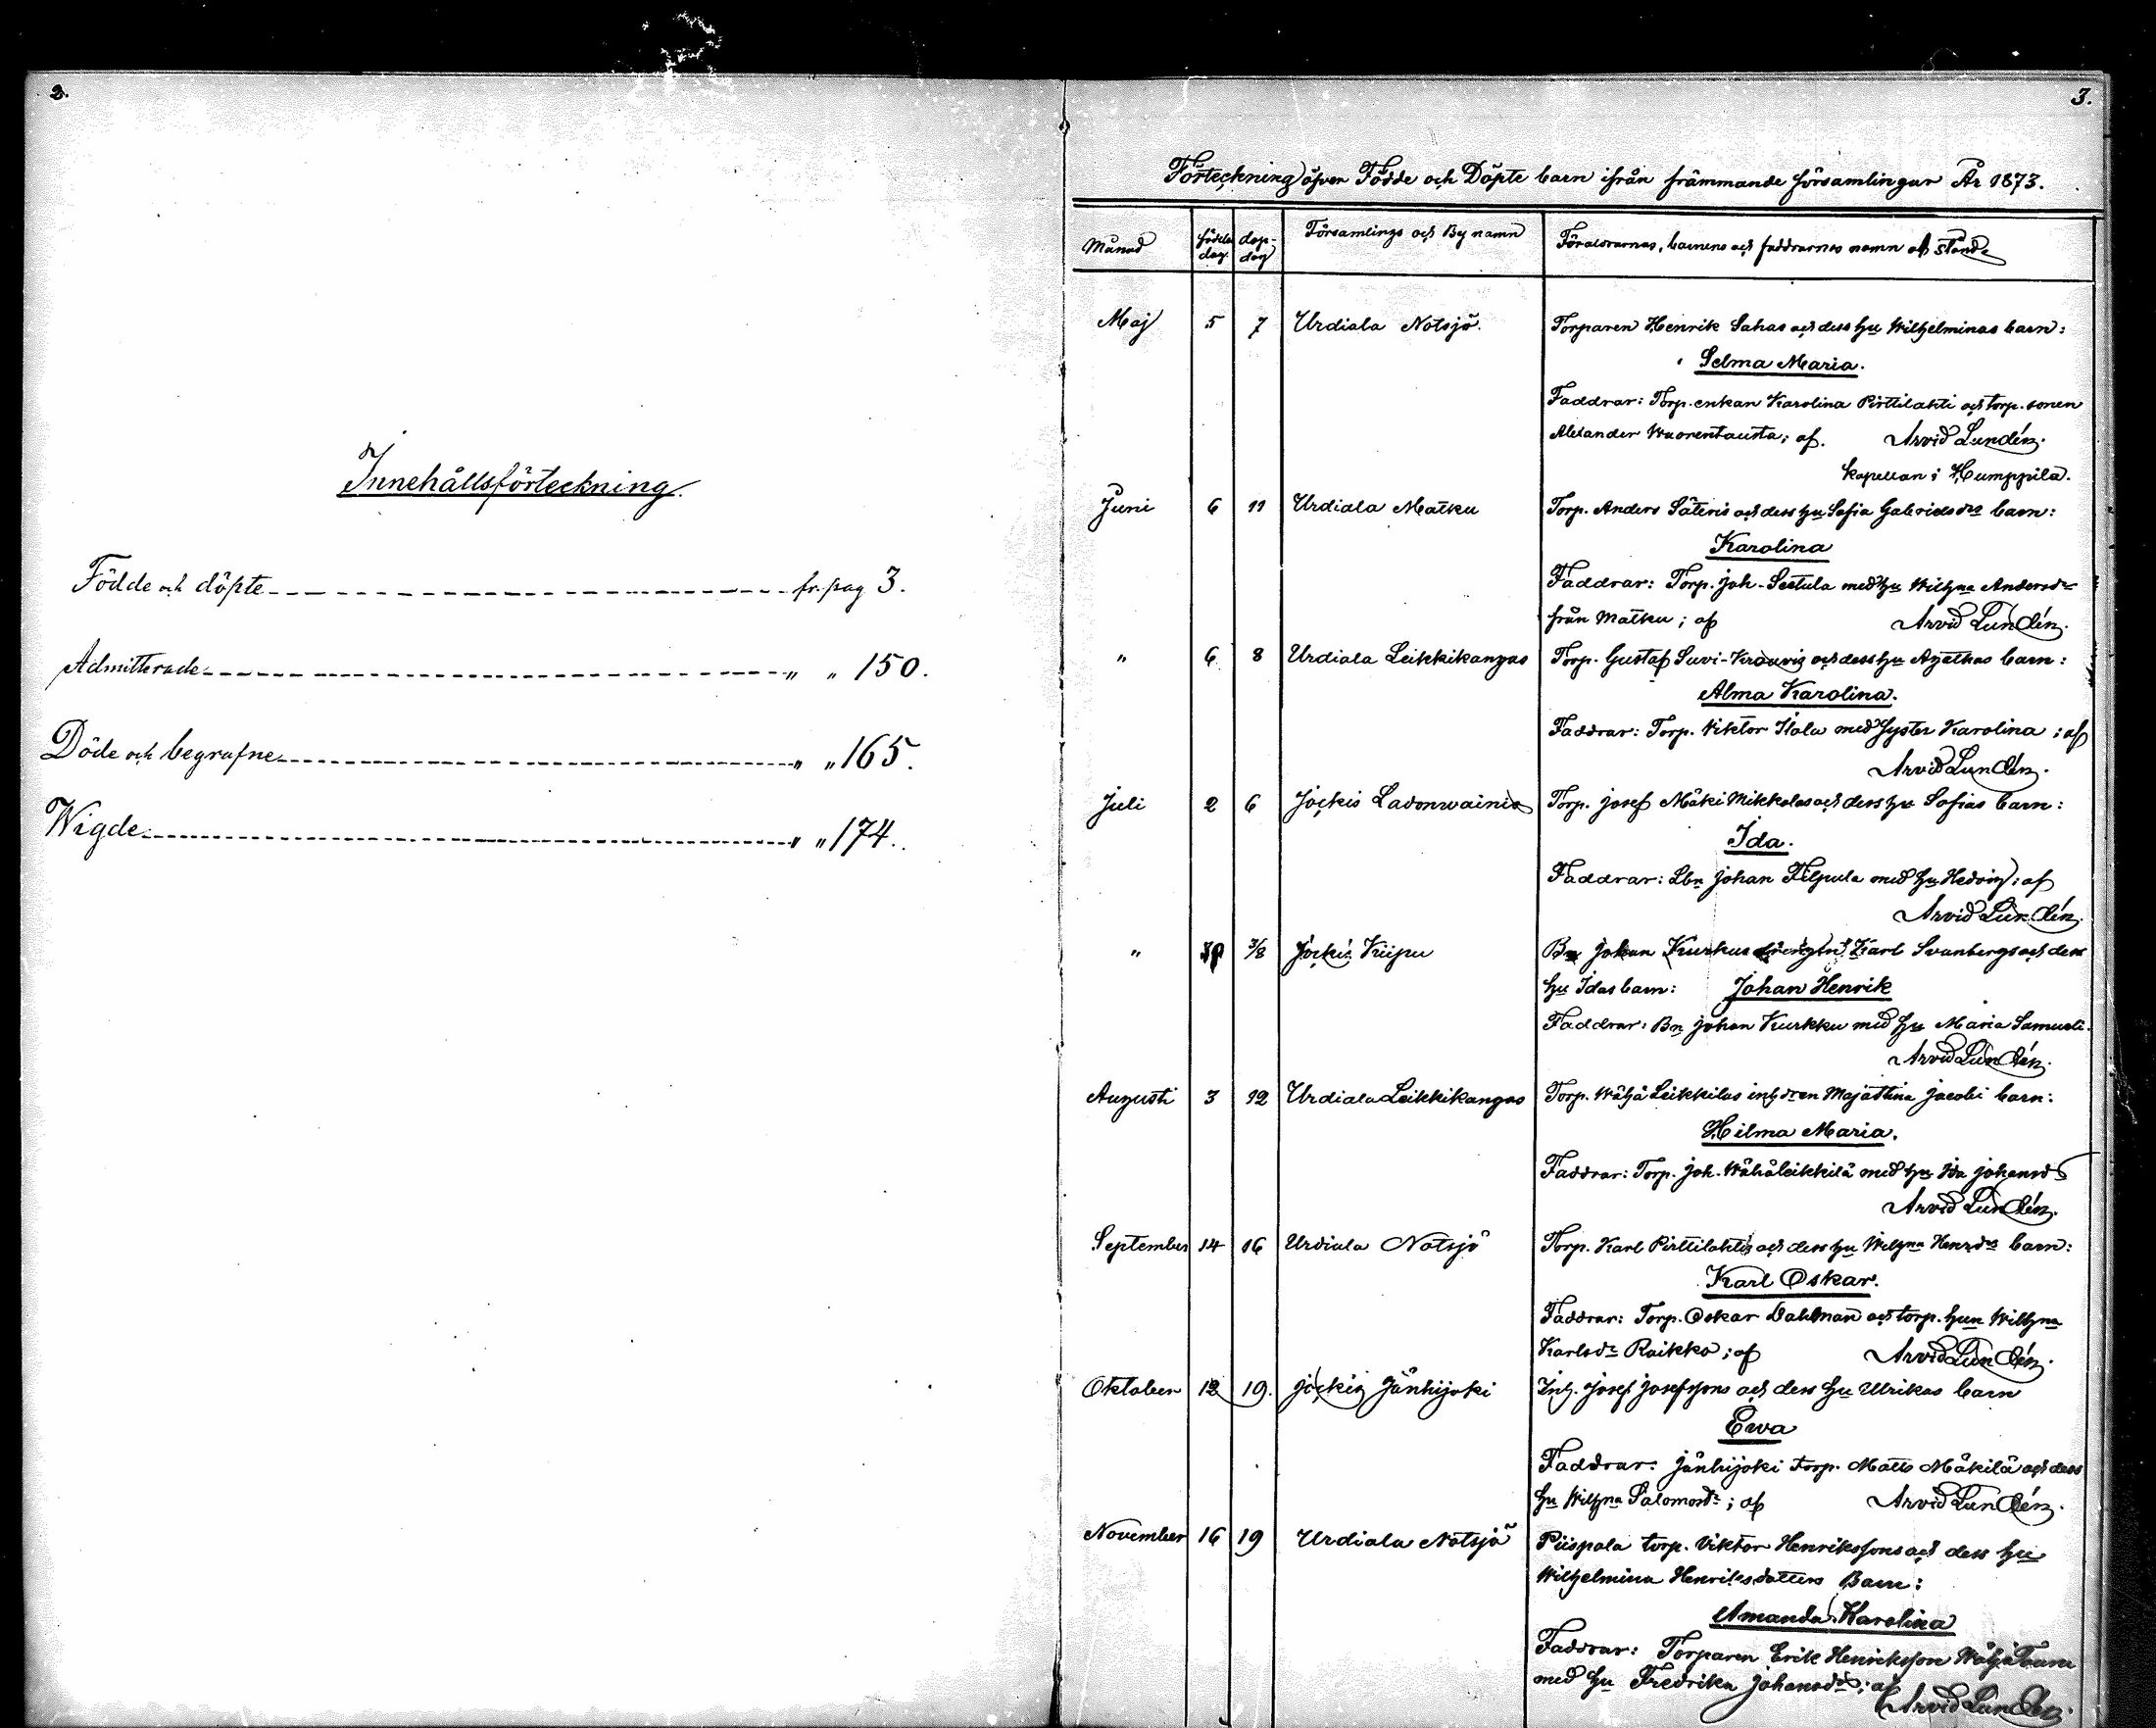 2.
Innehållsförteckning.
Födde och döpte fr. pag 3.
Admitterade " " 150.
Döde och begrafne " " 165.
Wigde " " 174.
3.
Förteckning öfver Födde och Döpte barn ifrån främmande församlingar År 1873.
Månad födelse dag dop-dag Församlings och By namn Föräldrarnas, barnens och faddrarnes namn och stånd
Maj 5 7 Urdiala Notsjö. Torparen Henrik Sahas och dess hu Wilhelminas barn:
Selma Maria.
Faddrar: Torp. enkan Karolina Pirttilahti och torp. sonen
Alexander Wuorentausta; af. Arvid Lundén.
Kapellan i Humppila.
Juni 6 11 Urdiala Matku Torp. Anders Säteris och dess hu Sofia Gabrielsdrs barn:
Karolina
Faddrar: Torp. Joh. Seetula med hu Wilhna Andersdr
från Matku; af Arvid Lundén.
" 6 8 Urdiala Leikkikangas Torp. Gustaf Suvi- och dess hu barn:
Alma Karolina.
Faddrar: Torp. Viktor Itala med syster Karolina; af
Arvid Lundén.
Juli 2 6 Jockis Ladonwainio Torp. Josef Mäki Mikkolas och dess hu Sofias barn:
Ida.
Faddrar: Lbn Johan Filpula med hu Hedvig; af
Arvid Lundén.
" 3/8 Jockis Kiipu Bn Johan Kurkus Karl Svanbergs och dess
hu Idas barn: Johan Henrik
Faddrar: Bn Johan Kurkku med hu Maria Samueli.
Arvid Lundén.
Augusti 3 12 Urdiala Leikkikangas Torp. Wähä Leikkilas Majastina Jacobi barn:
Hilma Maria.
Faddrar: Torp. Joh. Wähäleikkilä med hu Ida Johansdr
Arvid Lundén.
September 14 16 Urdiala Notsjö Torp. Karl Pirttilahtis och dess hu Wilhna Henrdrs barn:
Karl Oskar.
Faddrar: Torp. Oskar Dahlman och torp. hun Wilhna
Karlsdr Raikko; af Arvid Lundén.
Oktober 12 19. Jockis Jänhijoki Inh. Josef Josefssons och dess hu Ulrikas barn
Ewa
Faddrar: Jänhijoki torp. Matts Mäkilä och dess
hu Wilhna Salomonsdr; af Arvid Lundén.
November 16 19 Urdiala Notsjö Piispala torp. Viktor Henrikssons och dess hu
Wilhelmina Henriksdotters Barn:
Amanda Karolina
Faddrar: Torparen Erik Henriksson Wähä
med hu Fredrika Johansdr; af
Arvid Lundén.